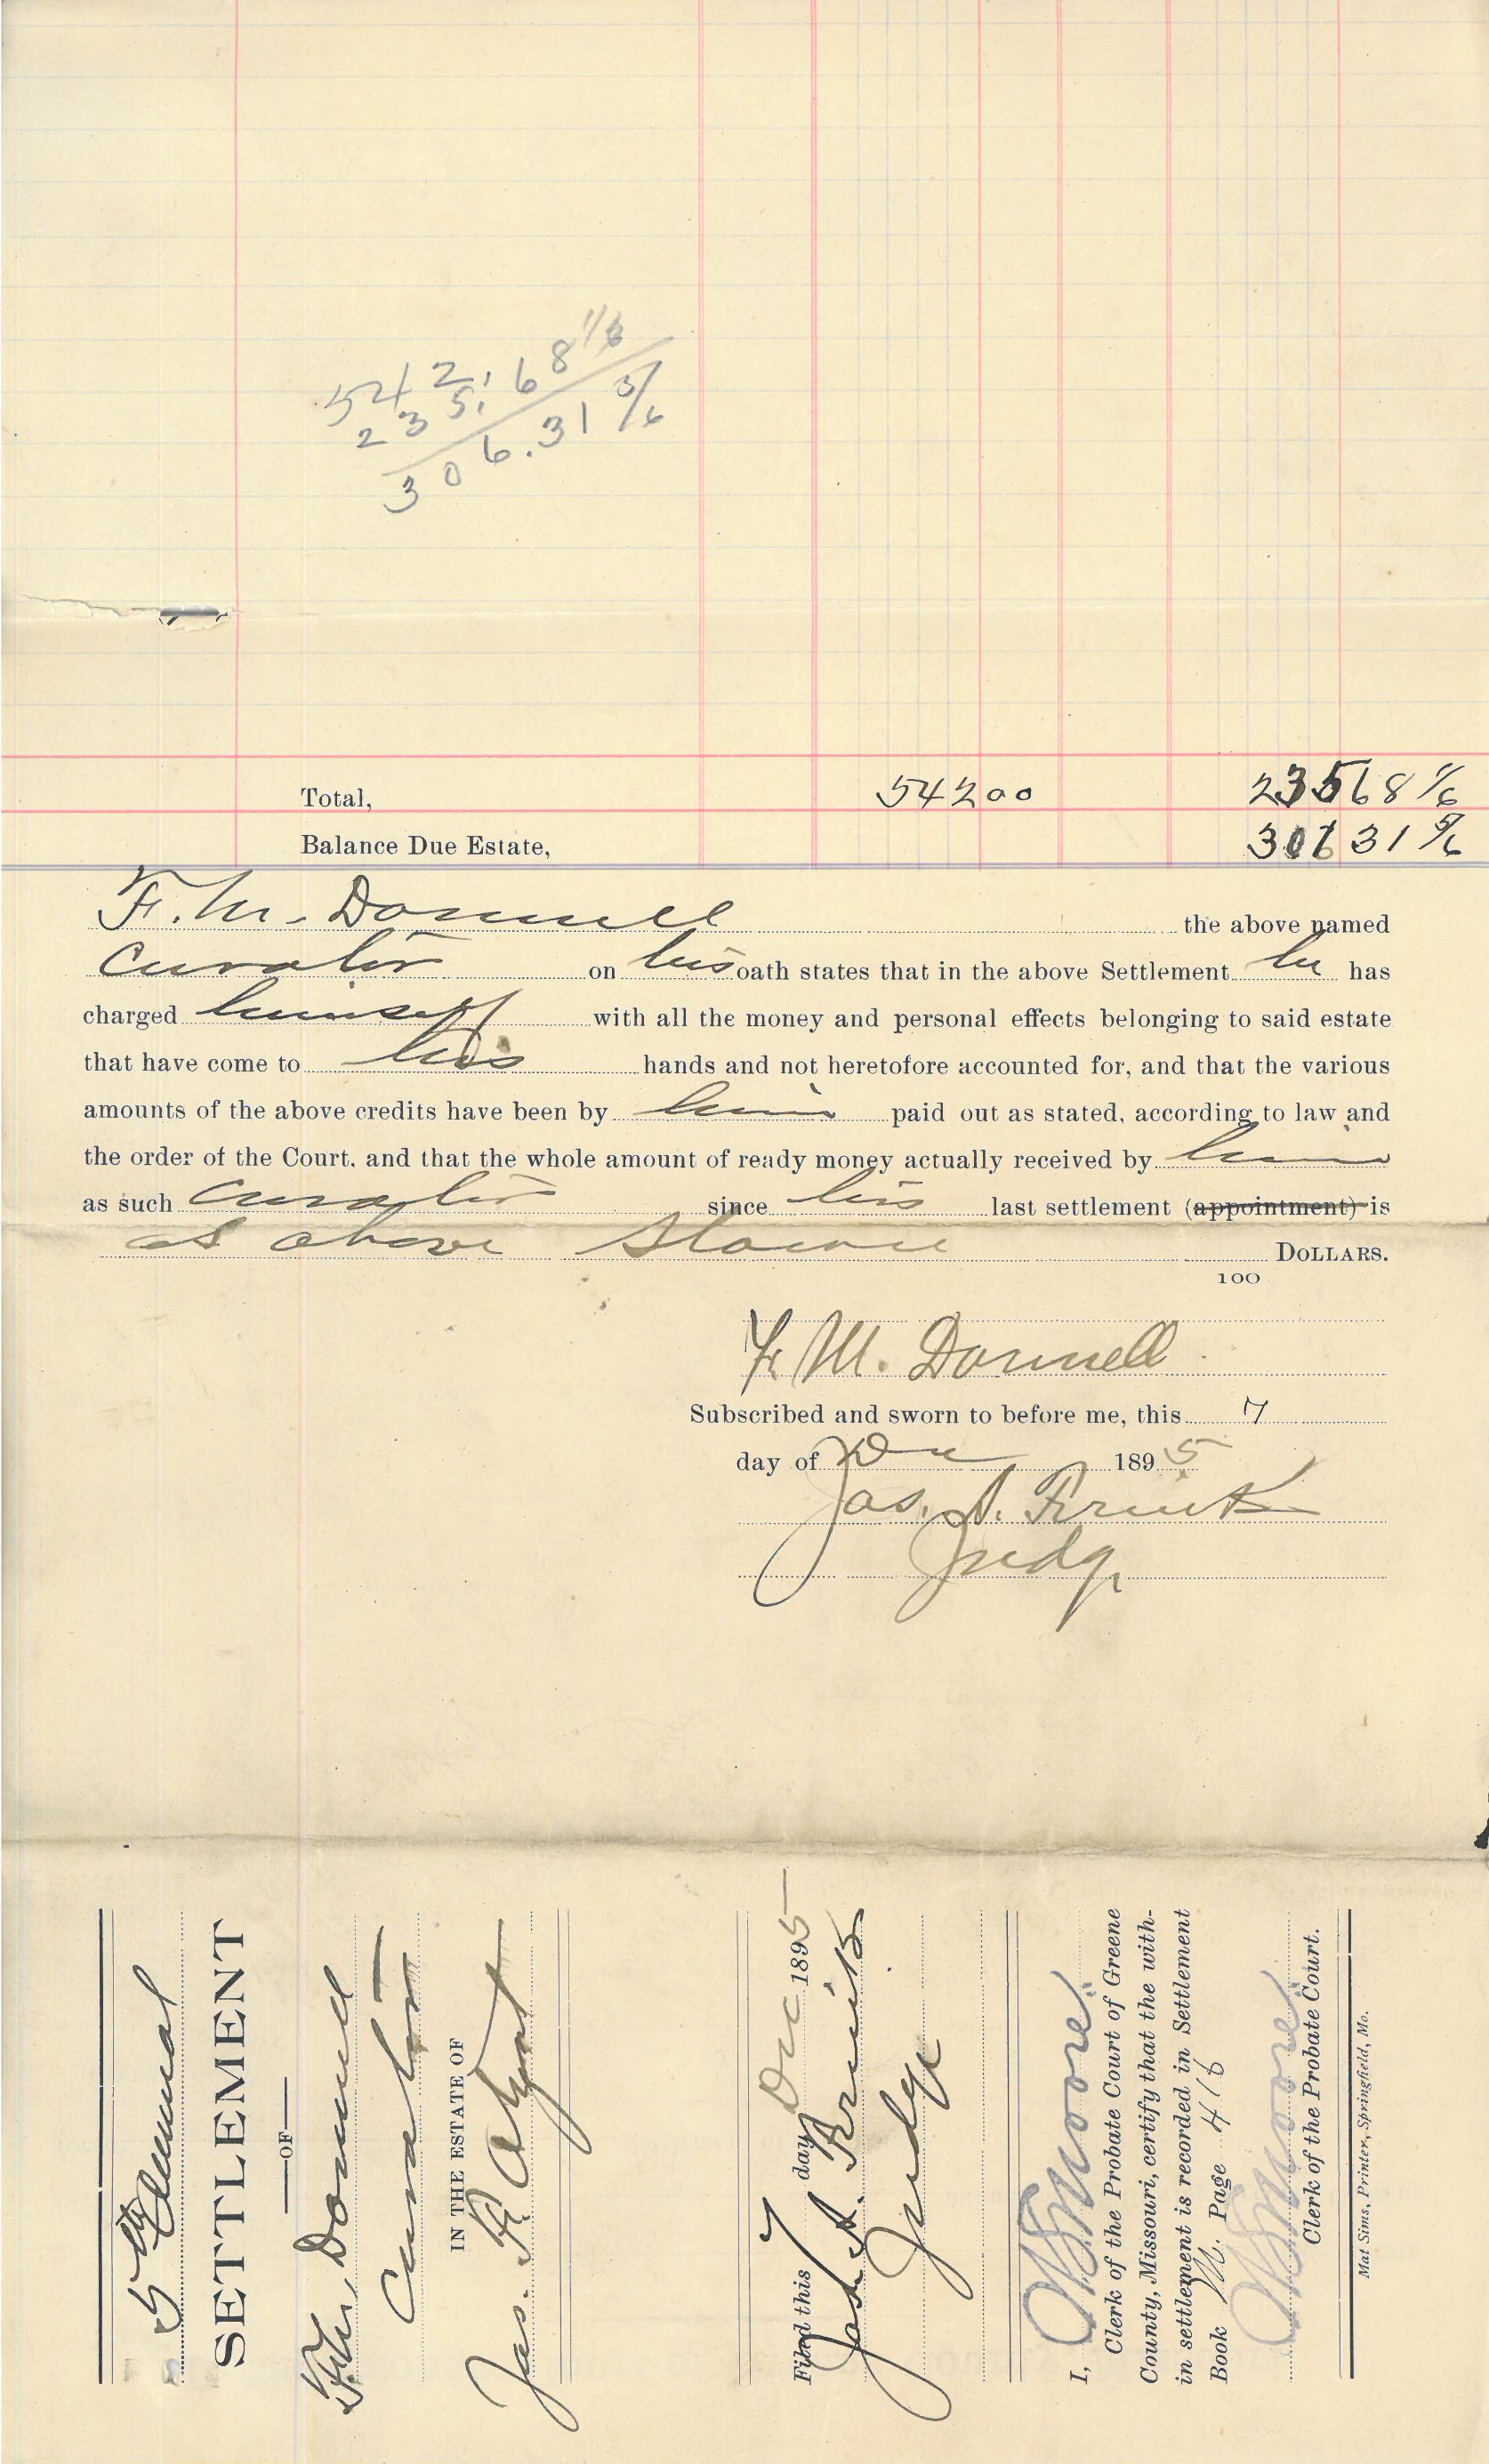 542,
235,68 1/6
306.31 5/6
Total, 542 00 235 68 1/6
Balance Due Estate, 306 31 5/6
F. M. Donnell the above named
Curator on his oath states that in the above Settlement he has
charged himself with all the money and personal effects belonging to said estate
that have come to his hands and not heretofore accounted for, and that the various
amounts of the above credits have been by him paid out as stated, according to law and
the order of the Court, and that the whole amount of ready money actually received by him
as such Curator since his last settlement (appointment) is
as above shown DOLLARS.
100
F. M. Donnell
Subscribed and sworn to before me, this 7
day of Dec 1895
Jas. A. Frink
Judge
5th Annual
SETTLEMENT
OF
F. M. Donnell
Curator
IN THE ESTATE OF
Jas. H.
Filed this 7 day Dec 1895
Jas. A. Frink
Judge
I, Moore
Clerk of the Probate Court of Greene
County, Missouri, certify that the with-
in settlement is recorded in Settlement
Book M. Page 416
Moore
Clerk of the Probate Court.
Mat Sims, Printer, Springfield, Mo.